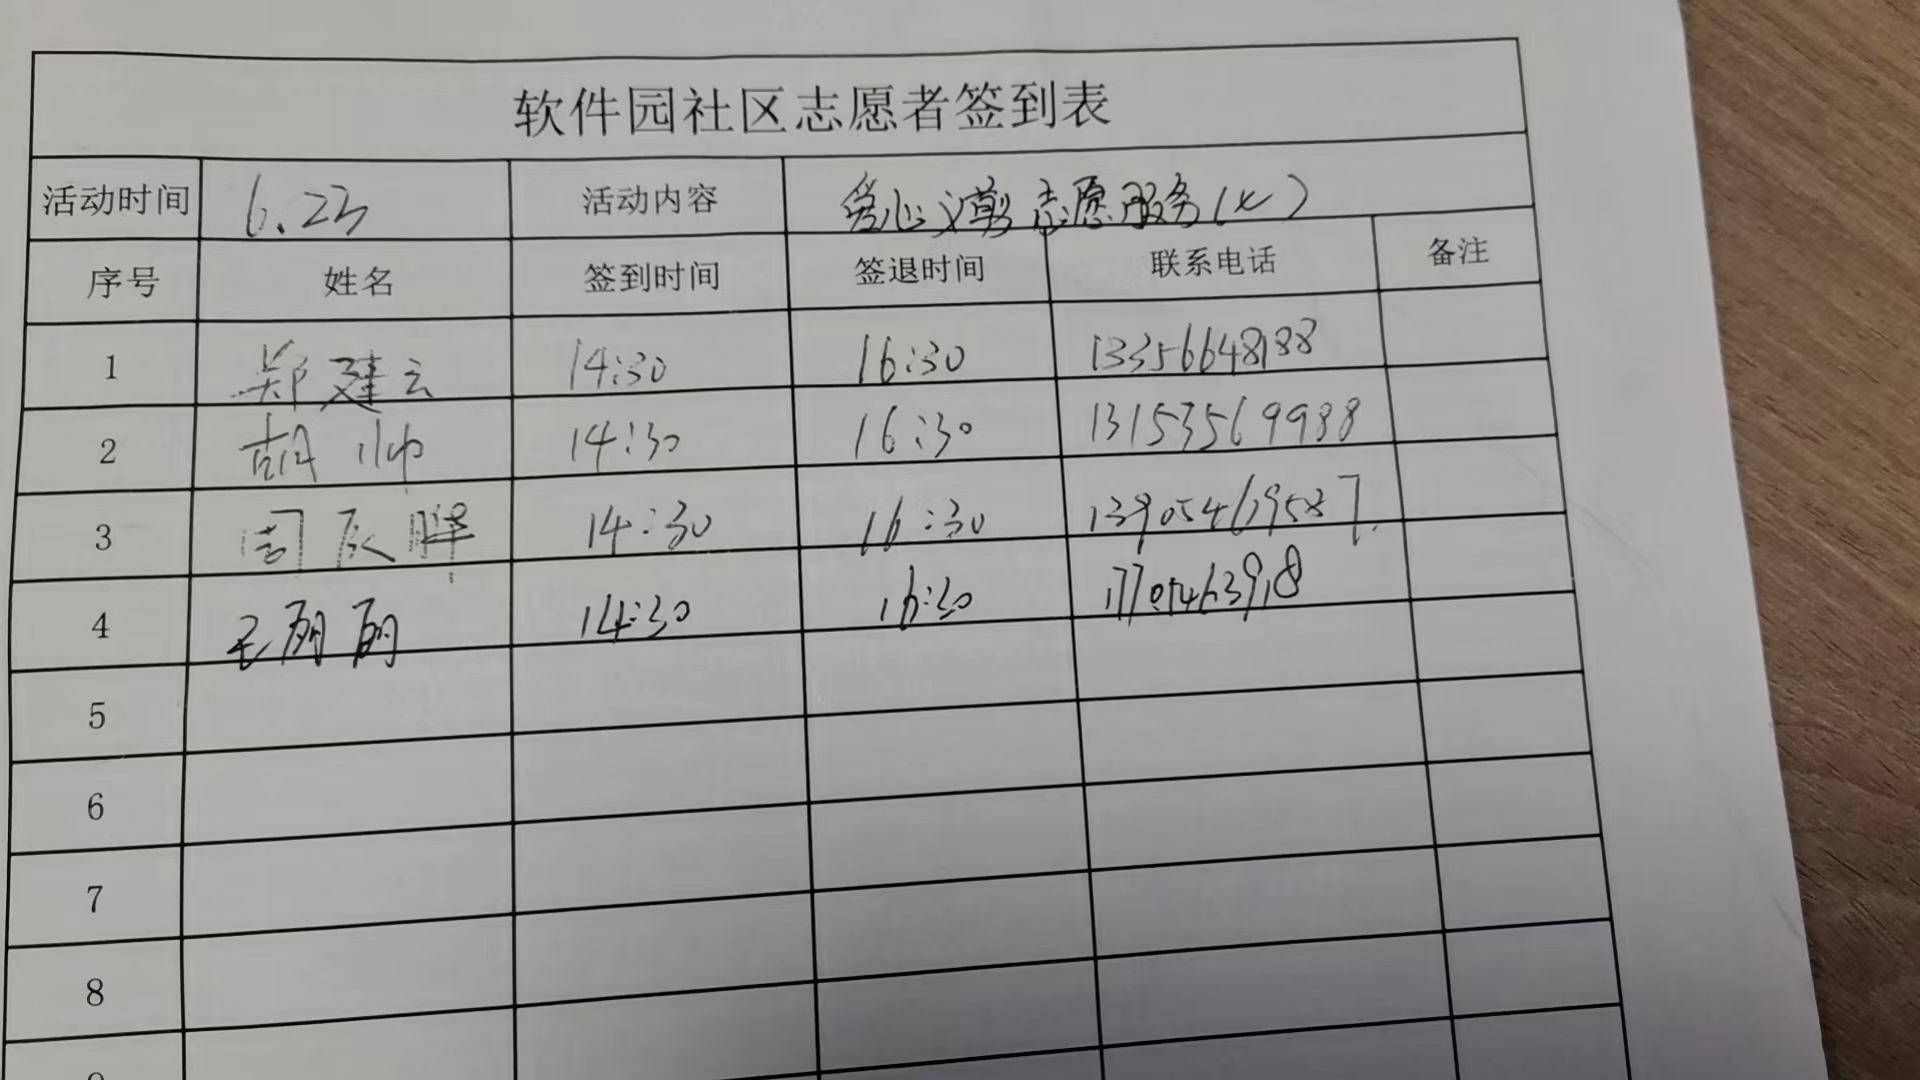 软件园社区志愿者签到表
活动时间 6.23 活动内容 爱心义剪志愿服务(七)
序号 姓名 签到时间 签退时间 联系电话 备注
1 郑建云 14:30 16:30 13356648188
2 胡帅 14:30 16:30 13153569988
3 周辰胜 14:30 16:30 13905469587
4 毛丽丽 14:30 16:30 17705463918
5
6
7
8